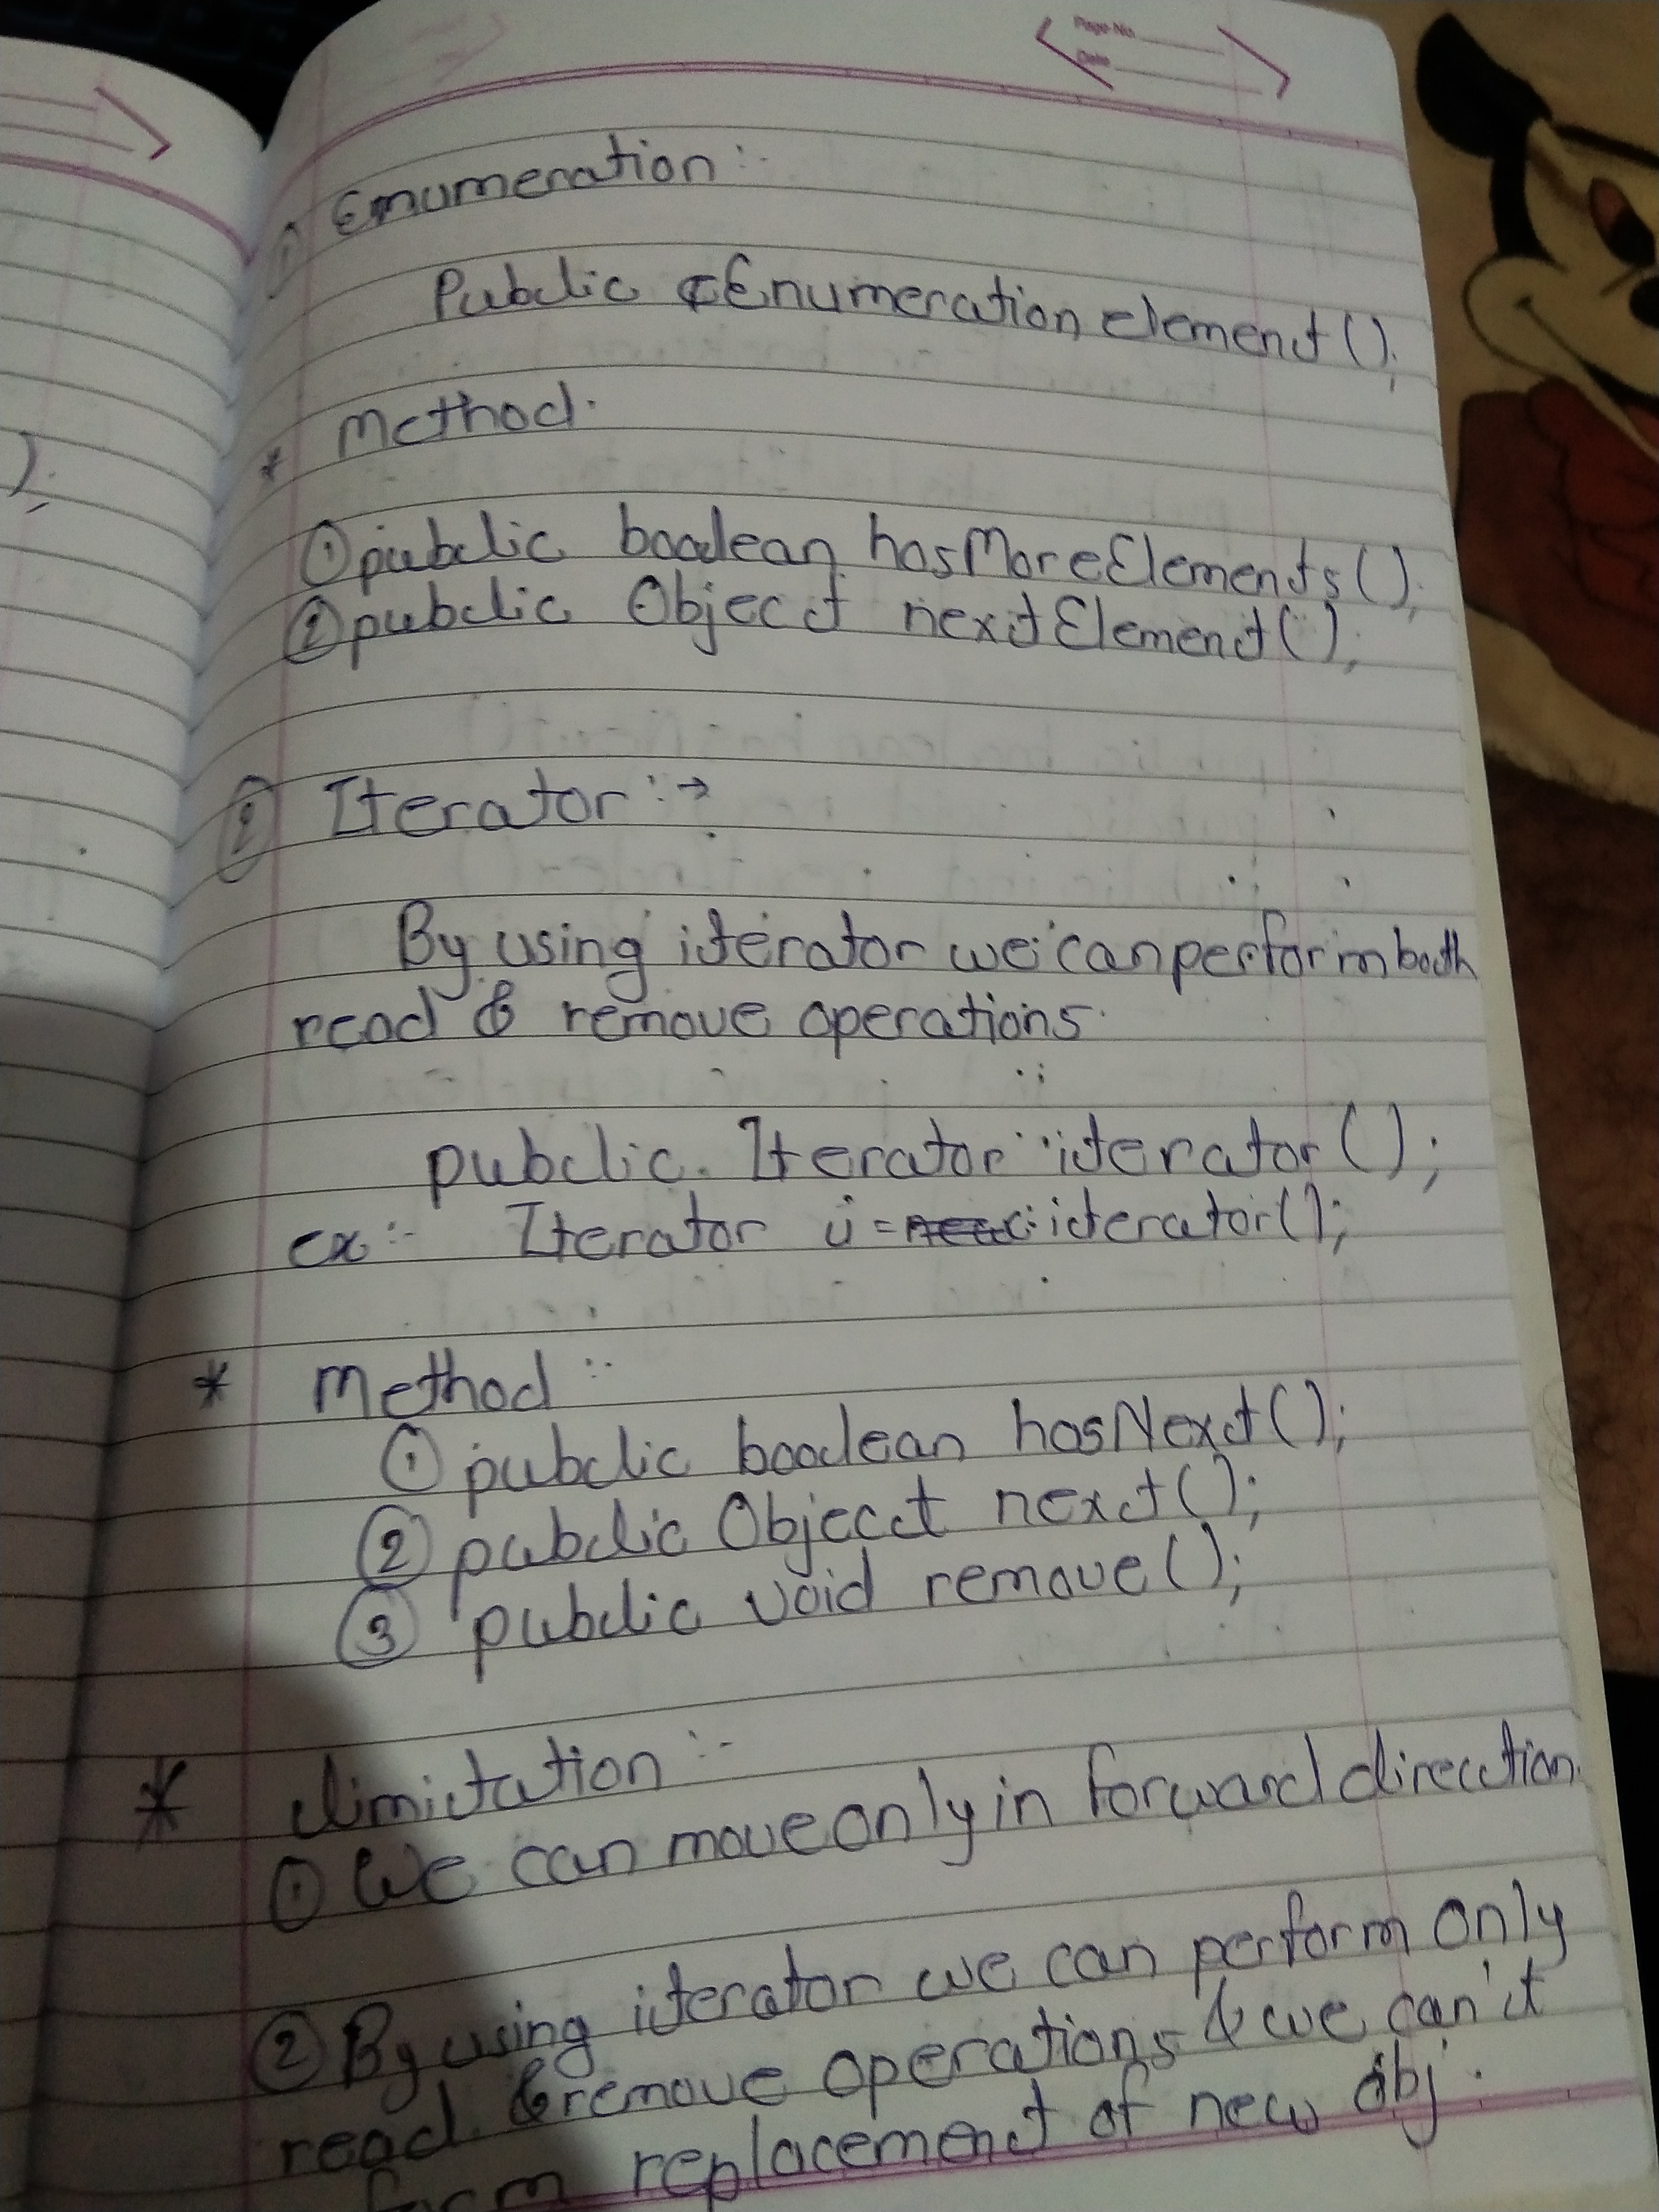 Page No.
Date
① Enumeration :-
Public Enumeration element();
* Method.
① public boolean hasMoreElements();
② public Object nextElement();
② Iterator :→
By using iterator we can perform both
read & remove operations.
public Iterator iterator();
ex:- Iterator i = c. iterator();
* Method :-
① public boolean hasNext();
② public Object next();
③ public void remove();
* limitation :-
① We can move only in forward direction.
② By using iterator we can perform only
read & remove operations & we can't
form replacement of new obj.
);